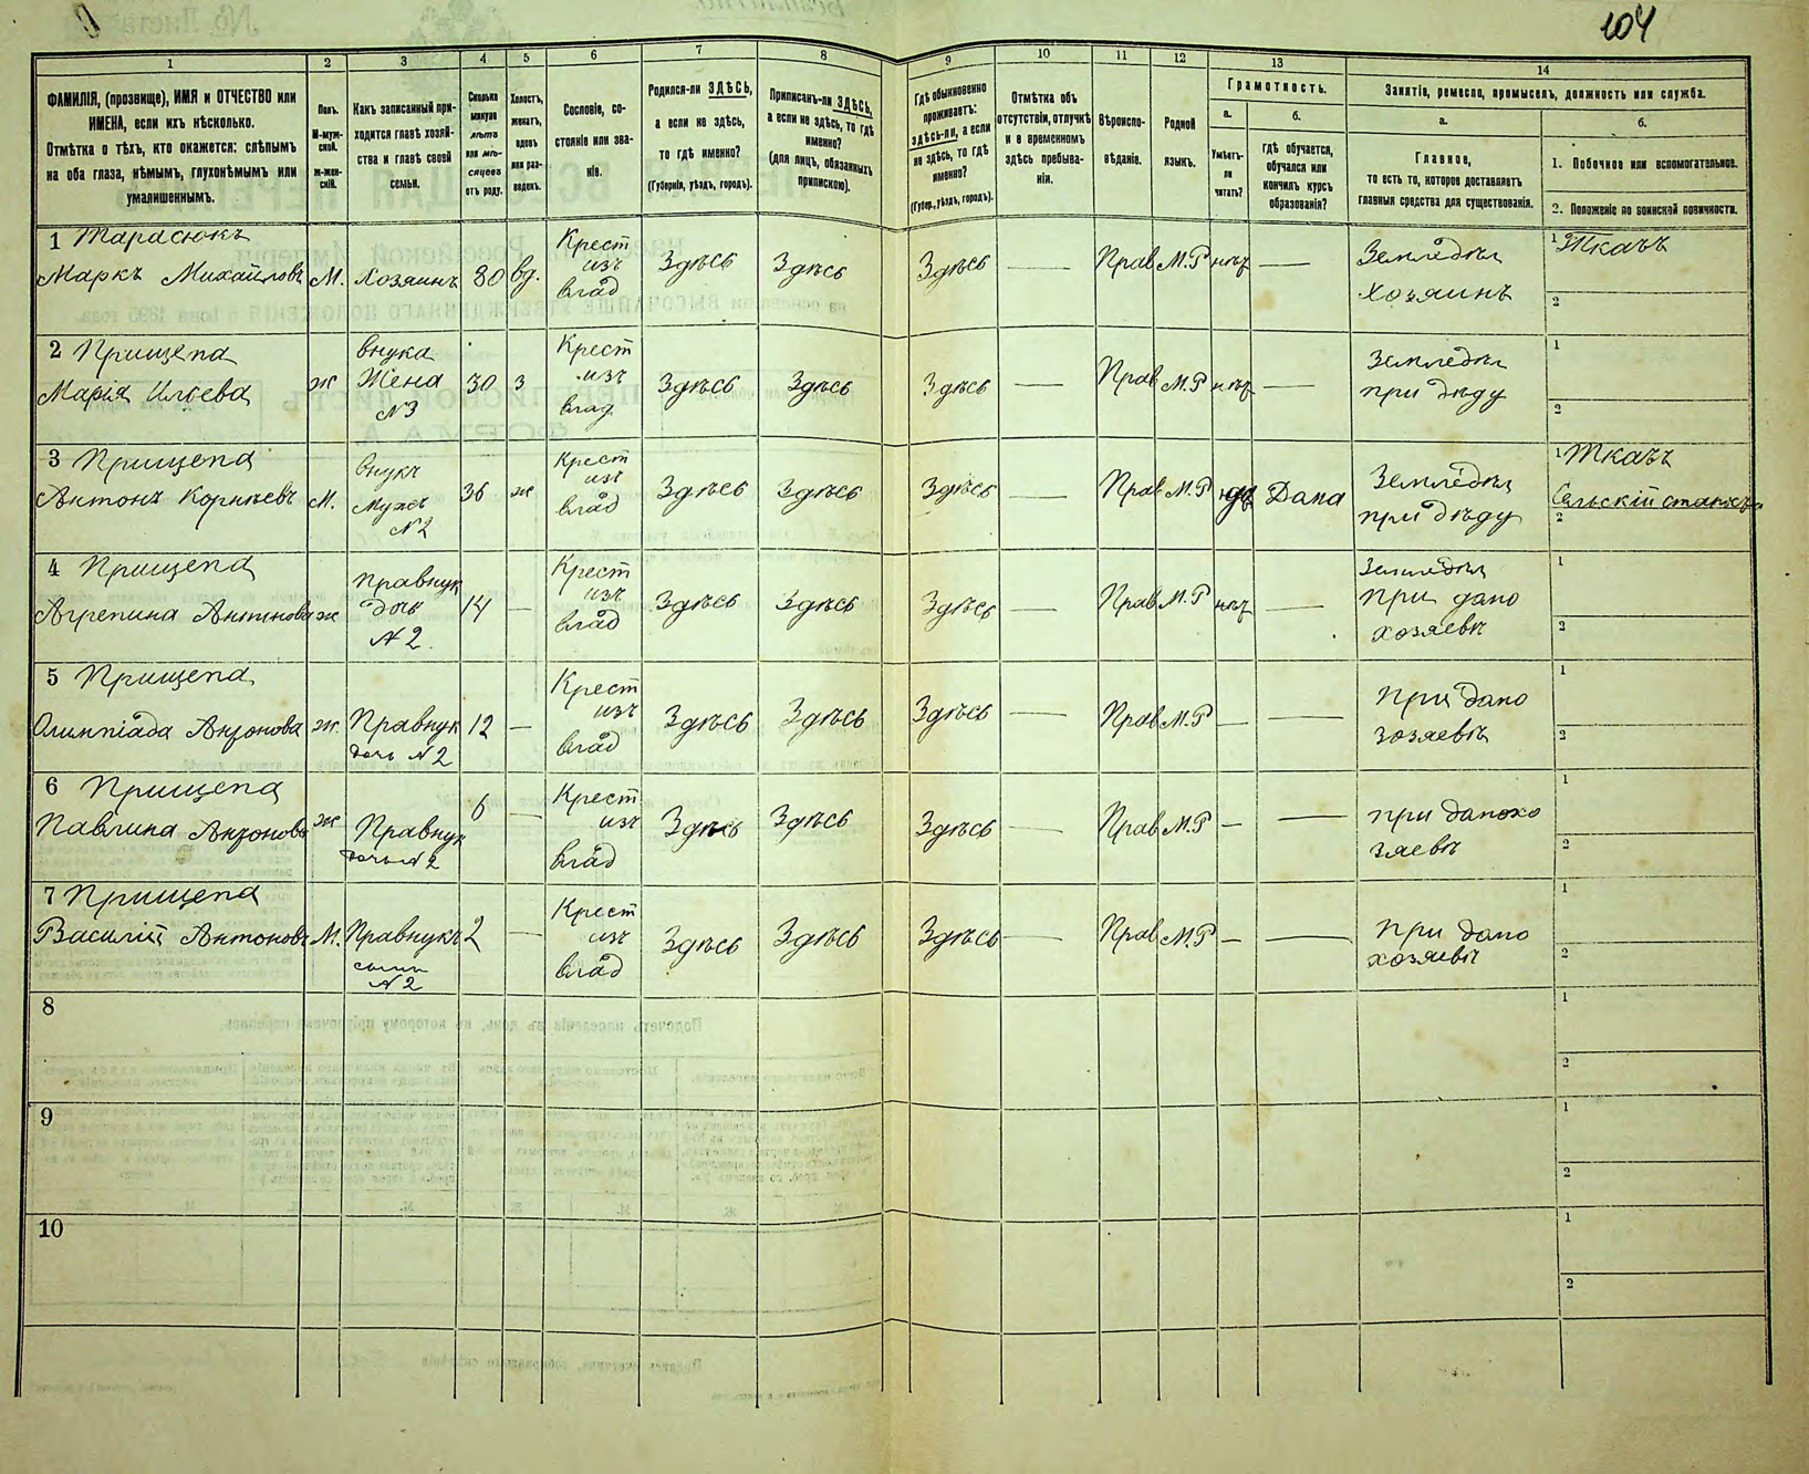 104
1 2 3 4 5 6 7 8 9 10 11 12 13 14
ФАМИЛІЯ, (прозвище), ИМЯ и ОТЧЕСТВО или
ИМЕНА, если ихъ нѣсколько.
Отмѣтка о тѣхъ, кто окажется: слѣпымъ
на оба глаза, нѣмымъ, глухонѣмымъ или
умалишеннымъ.
Полъ.
М-муж-
ской.
ж-жен-
скій.
Какъ записанный при-
ходится главѣ хозяй-
ства и главѣ своей
семьи.
Сколько
минуло
лѣтъ
или мѣ-
сяцевъ
отъ роду.
Холостъ,
женатъ,
вдовъ
или раз-
веденъ.
Сословіе, со-
стояніе или зва-
ніе.
Родился-ли ЗДѢСЬ,
а если не здѣсь,
то гдѣ именно?
(Губернія, уѣздъ, городъ).
Приписанъ-ли ЗДѢСЬ,
а если не здѣсь, то гдѣ
именно?
(для лицъ, обязанныхъ
припискою).
Гдѣ обыкновенно
проживаетъ:
здѣсь-ли, а если
не здѣсь, то гдѣ
именно?
(Губер., уѣздъ, городъ).
Отмѣтка объ
отсутствіи, отлучкѣ
и о временномъ
здѣсь пребыва-
ніи.
Вѣроиспо-
вѣданіе.
Родной
языкъ.
Грамотность.
а.
Умѣетъ-
ли
читать?
б.
гдѣ обучается,
обучался или
кончилъ курсъ
образованія?
Занятіе, ремесло, промыселъ, должность или служба.
а.
Главное,
то есть то, которое доставляетъ
главныя средства для существованія.
б.
1. Побочное или вспомогательное.
2. Положеніе по воинской повинности.
1 Тарасюкъ
Маркъ Михайловъ М. Хозяинъ 80 вд. Крест изъ влад Здѣсь Здѣсь Здѣсь — Прав М.Р нѣт — Земледѣл Хозяинъ 1 Ткачъ
2
2 Прищепа
Марія Ильева ж внука Жена N3 30 з Крест изъ влад Здѣсь Здѣсь Здѣсь — Прав М.Р нѣт — Земледѣл при дѣду 1
2
3 Прищепа
Антонъ Корнѣевъ М. внукъ Мужъ N2 36 ж Крест изъ влад Здѣсь Здѣсь Здѣсь — Прав М.Р Дома Земледѣл при дѣду 1 Ткачъ
Сельскій
2
4 Прищепа
Агрепина Антонова ж правнук дочь N2 14 — Крест изъ влад Здѣсь Здѣсь Здѣсь — Прав М.Р нѣт — Земледѣл при дамо хозяевѣ 1
2
5 Прищепа
Олимпіада Антонова ж. Правнук дочь N2 12 — Крест изъ влад Здѣсь Здѣсь Здѣсь — Прав М.Р — — при дамо зозяевѣ 1
2
6 Прищепа
Павлина Антонова ж Правнук дочь N2 6 — Крест изъ влад Здѣсь Здѣсь Здѣсь — Прав М.Р — — при дамохо зяевѣ 1
2
7 Прищепа
Василій Антоновъ М. Правнукъ сынъ N2 2 — Крест изъ влад Здѣсь Здѣсь Здѣсь — Прав М.Р — — при дамо хозяевѣ 1
2
8 1
2
9 1
2
10 1
2